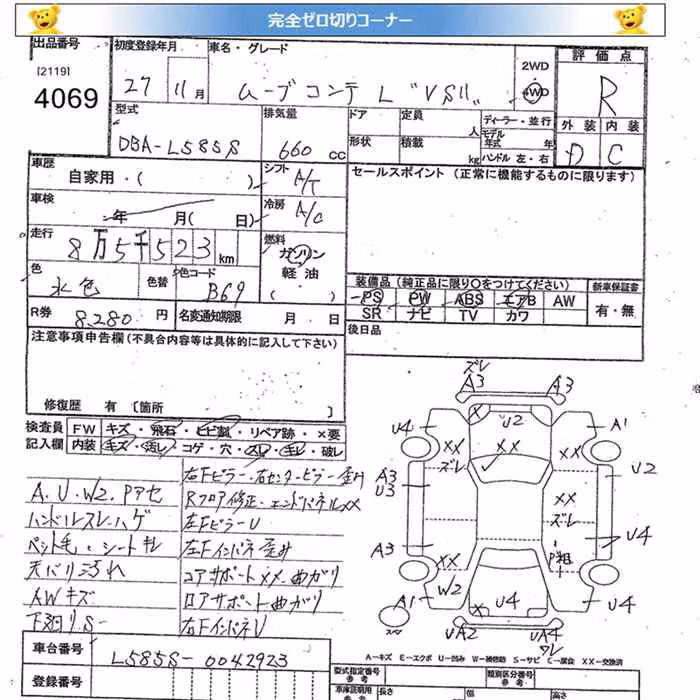 完全ゼロ切りコーナー
出品番号 [2119] 4069
初度登録年月 27 11月
車名・グレード ムーブコンテ L "VSⅡ"
2WD 4WD
評価点 R
外装 内装 D C
型式 DBA-L585S
排気量 660 cc
ドア 定員 人 ディーラー・並行
形状 積載 kg モデル年式 年
ハンドル 左・右
車歴 自家用・( )
シフト A/T
車検 年 月( 日)
冷房 A/C
走行 8万5千523km
燃料 ガソリン 軽油 ( )
色 水色 色替 色コード B69
R券 8,280円 名変通知期限 月 日
セールスポイント(正常に機能するものに限ります)
装備品(純正品に限り○をつけてください)
PS PW ABS エアB AW
SR ナビ TV カワ
新車保証書 有・無
後日品
注意事項申告欄(不具合内容等は具体的に記入して下さい)
修復歴 有 [箇所 ]
検査員記入欄
FW キズ・飛石・ヒビ割・リペア跡・×要
内装 キズ・汚レ・コゲ・穴・スレ・キレ・破レ
A.U.W2.Pアセ
ハンドルスレ・ハゲ
ペット毛・シートキレ
天バリ汚れ
AWキズ
下廻りS-
右Fピラー・右センターピラー歪み
Rフロア修正・エンドパネルXX
左FピラーU
左Fインパネ歪み
コアサポートXX・曲ガリ
ロアサポート曲ガリ
右FインパネU
ズレ
A3 A3
U4 U2 A1
XX ズレ XX XX
A3 U3 U2
XX ズレ
A3 P粗 U4
XX W2
A1 X U4 U4
スペア
UA2 UA4 ワレ
A-キズ E-エクボ U-凹み W-補修跡 S-サビ C-腐食 XX-交換済
車台番号 L585S-0042923
登録番号
型式指定番号 参考
類別区分番号 参考
車庫証明用 長さ 幅 高さ